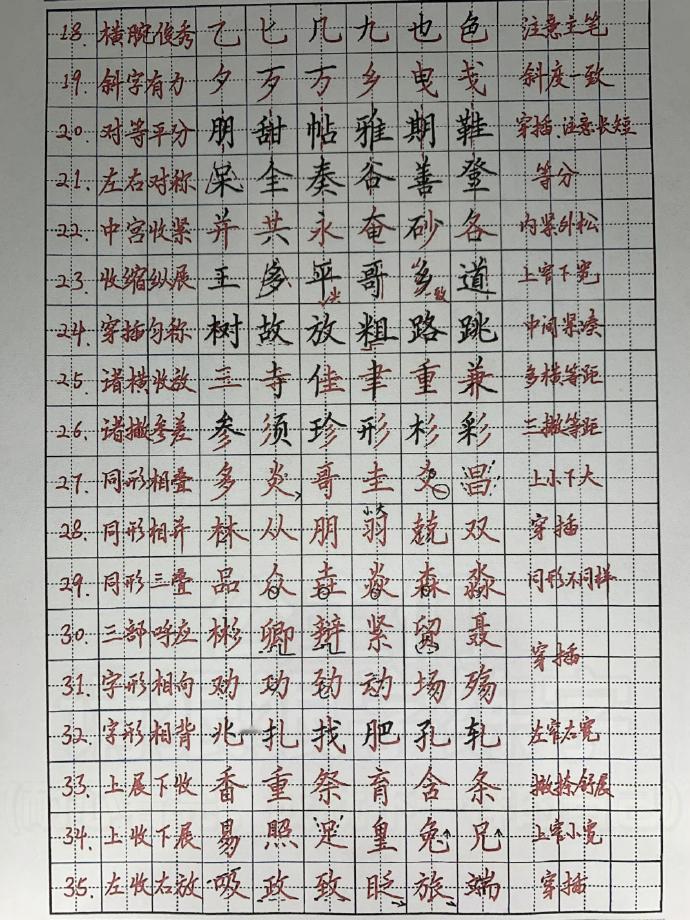 18. 横腕俊秀 乙 匕 几 九 也 色 注意主笔
19. 斜字有力 夕 歹 万 乡 曳 戋 斜度一致
20. 对等平分 朋 甜 帖 雅 期 鞋 穿插、注意长短
21. 左右对称 呆 全 奏 谷 善 登 等分
22. 中宫收紧 并 共 永 奄 砂 各 内紧外松
23. 收缩纵展 王 多 平 哥 乡 道 上窄下宽
24. 穿插匀称 树 故 放 粗 路 跳 中间紧凑
25. 诸横收放 三 寺 佳 聿 重 兼 多横等距
26. 诸撇参差 参 须 珍 形 杉 彩 三撇等距
27. 同形相叠 多 炎 哥 圭 爻 昌 上小下大
小大
28. 同形相并 林 从 朋 羽 兢 双 穿插
29. 同形三叠 品 众 垚 焱 森 淼 同形不同样
30. 三部呼应 彬 卿 辩 紧 留 聂
穿插
31. 字形相向 劝 功 劲 动 场 殇
32. 字形相背 兆 扎 找 肥 孔 轧 左窄右宽
33. 上展下收 番 重 祭 育 含 条 撇捺舒展
34. 上收下展 易 照 足 皇 兔 兄 上窄小宽
35. 左收右放 吸 政 致 眨 旅 端 穿插